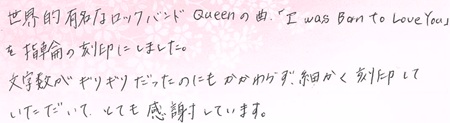 世界的有名なロックバンド Queenの曲、「I was Born to Love You」
を指輪の刻印にしました。
文字数がギリギリだったのにもかかわらず、細かく刻印して
いただいて、とても感謝しています。